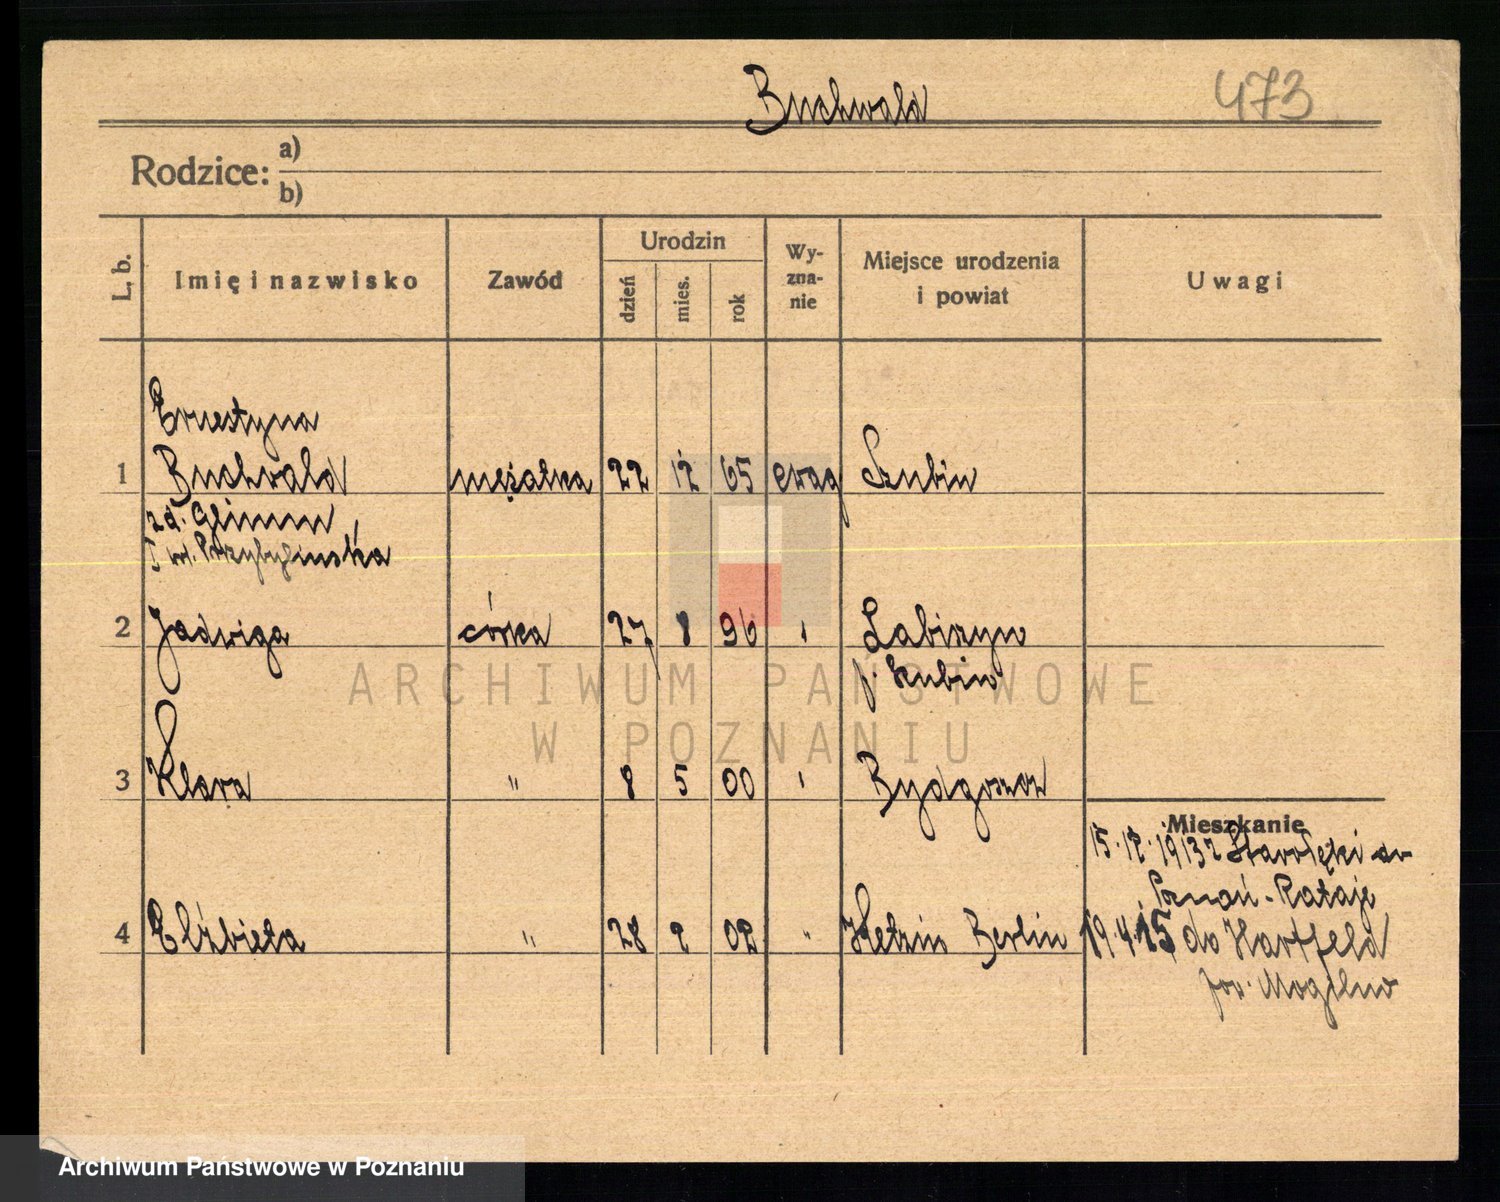 Buchwald
473
Rodzice: a)
b)
L. b.
Imię i nazwisko
Zawód
Urodzin
dzień
mies.
rok
Wy-
zna-
nie
Miejsce urodzenia
i powiat
Uwagi
Ernestyna
1 Buchwald mężatka 22 12 65 ewag Szubin
zd. Glimm
I vel. Przybylinska
2 Jadwiga córka 27 8 96 " Labiszyn
p. Szubin
ARCHIWUM PAŃSTWOWE
W POZNANIU
3 Klara " 8 5 00 " Bydgoszcz
Mieszkanie
15.12.1913 z Starołęki
Poznań-Rataje
4 Elżbieta " 28 2 02 " Ketzin Berlin 19.4.15 do Hartfeld
pow. Mogilno
Archiwum Państwowe w Poznaniu